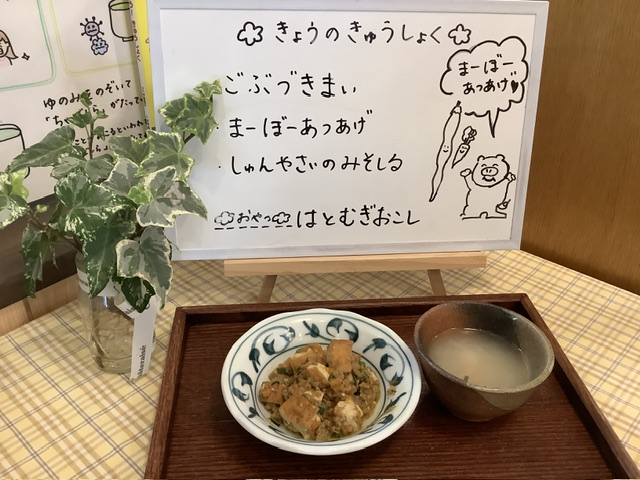 きょうのきゅうしょく
ごぶづきまい
・まーぼーあつあげ
・しゅんやさいのみそしる
おやつ はとむぎおこし
まーぼー
あつあげ♥
ゆのみ
のぞいて